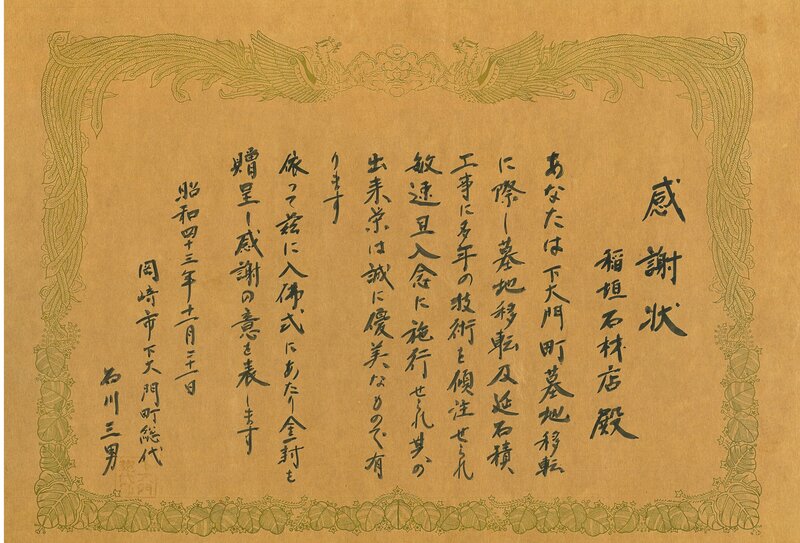 感謝状
稲垣石材店殿
あなたは下大門町墓地移転
に際し墓地移転及延石積
工事に多年の技術を傾注せられ
敏速且入念に施行せられ其の
出来栄は誠に優美なもので有
ります
依って茲に入佛式にあたり金一封を
贈呈し感謝の意を表します
昭和四十三年十一月二十一日
岡崎市下大門町総代
石川三男